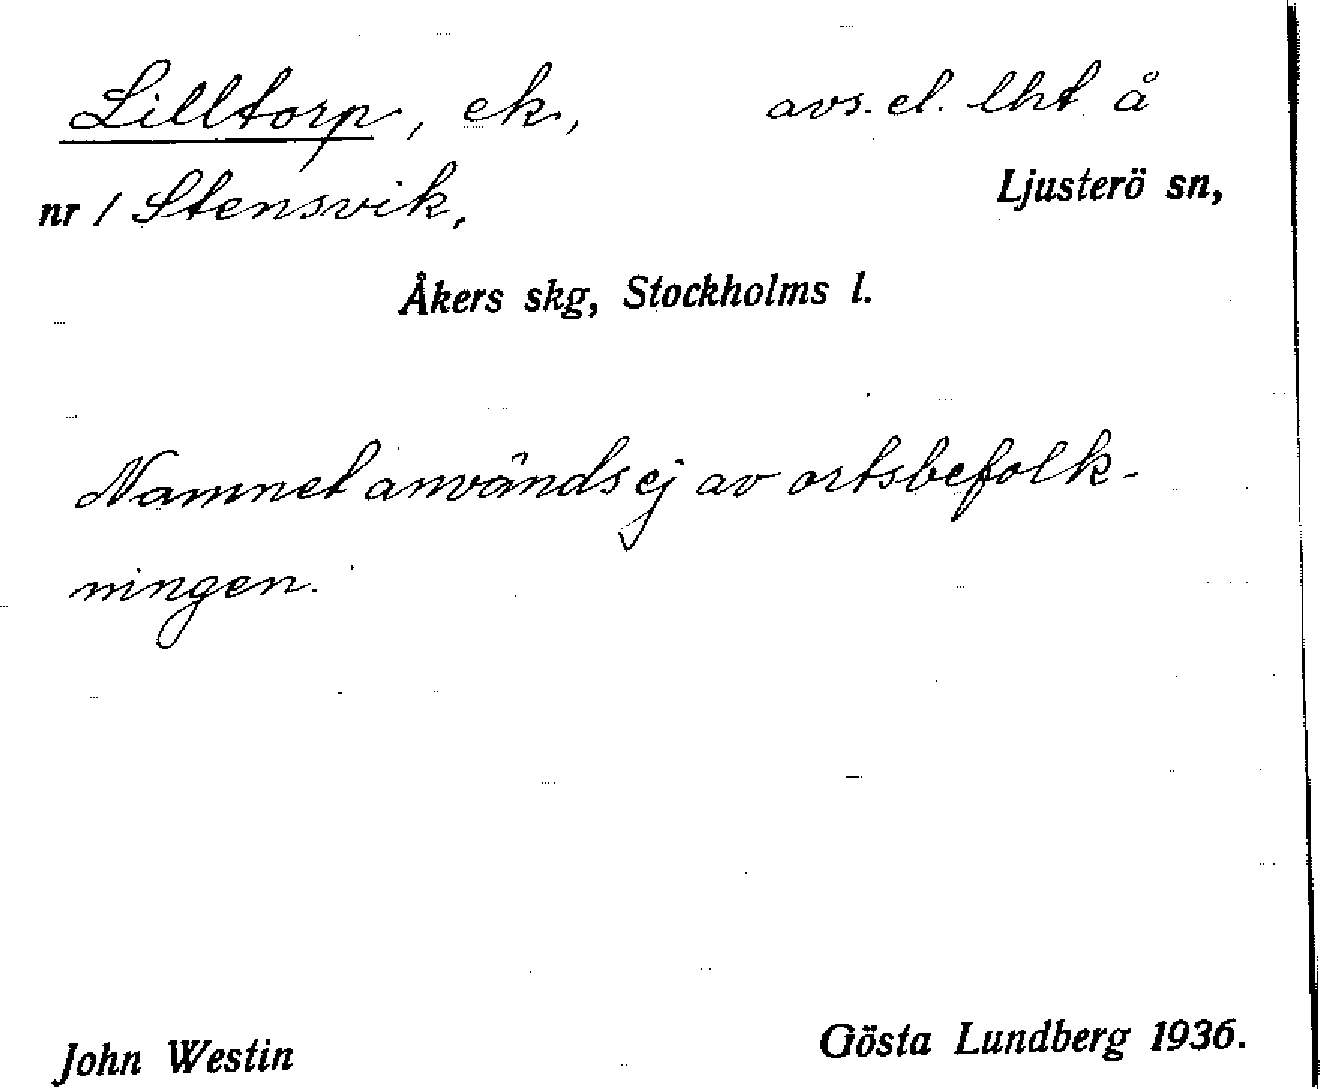 Lilltorp, ek, avs. el. lht å
nr 1 Stensvik, Ljusterö sn,
Åkers skg, Stockholms l.
Namnet används ej av ortsbefolk-
ningen.
John Westin Gösta Lundberg 1936.